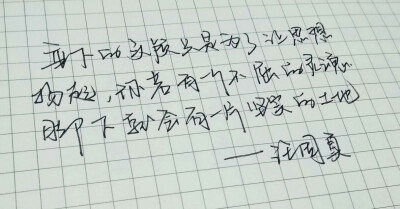 垂下的头颅只是为了让思想
扬起,你若有一个不屈的灵魂
脚下就会有一片坚实的土地
——汪国真